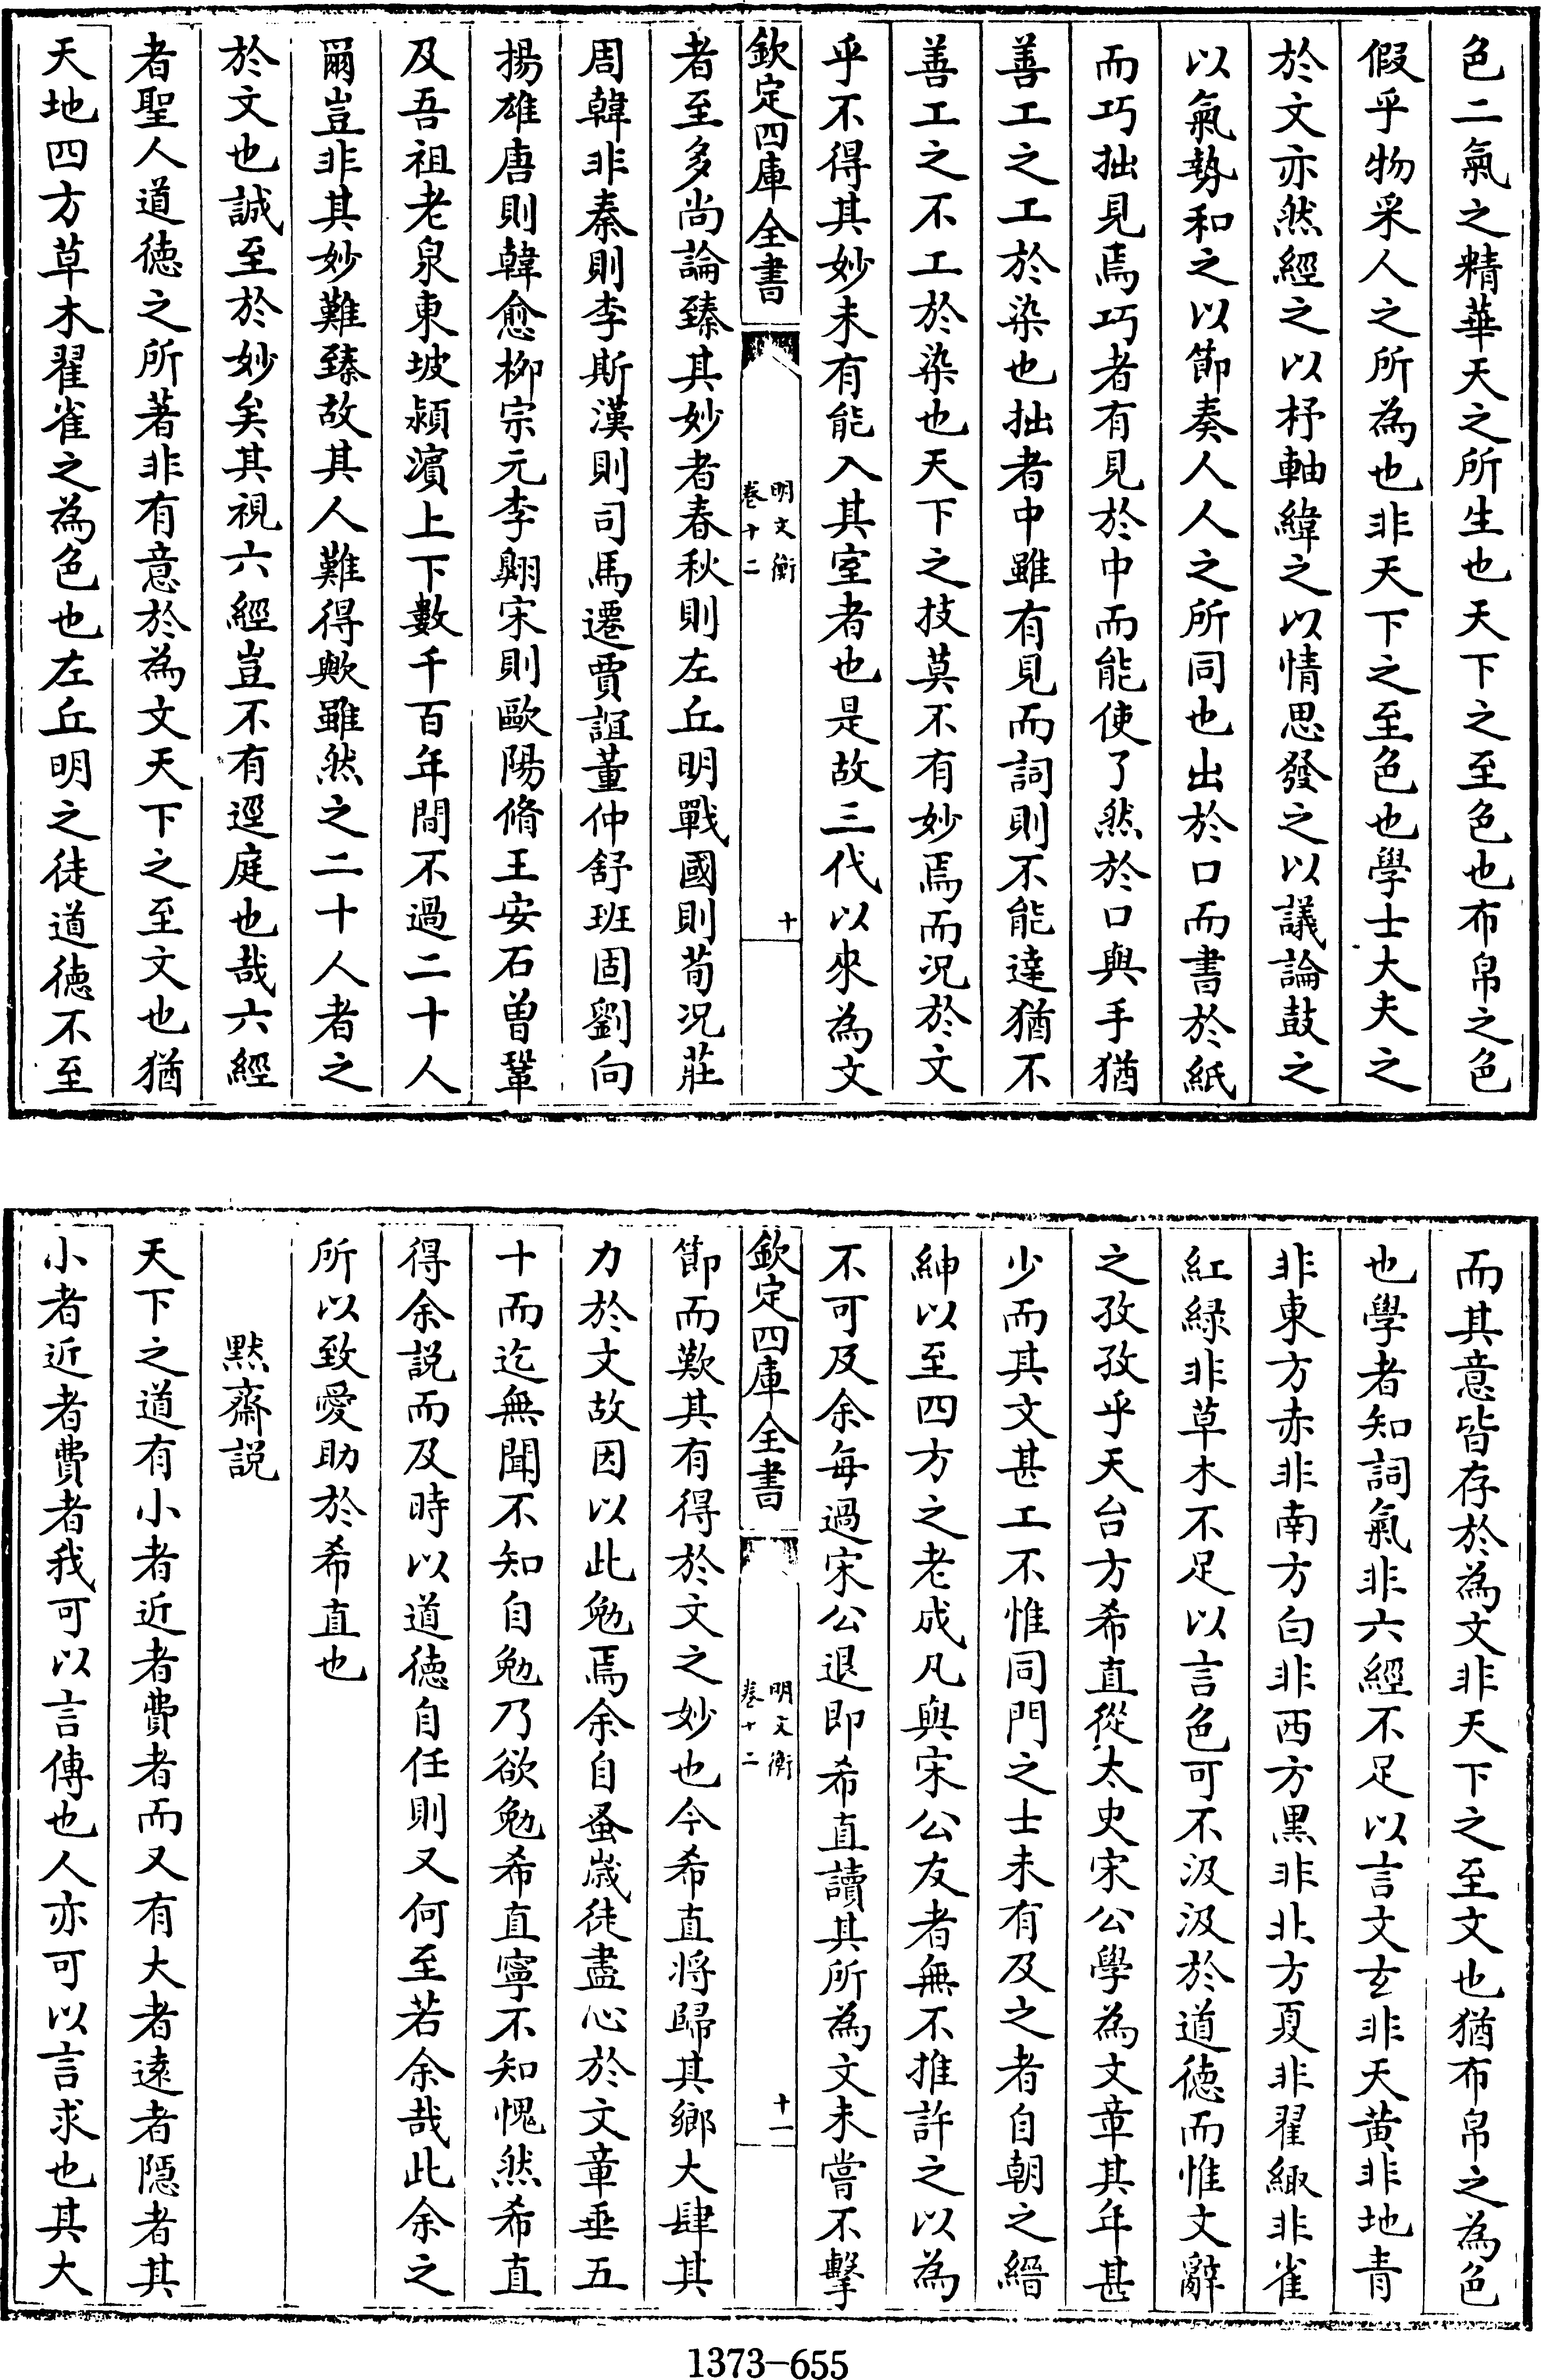 色二氣之精華天之所生也天下之至色也布帛之色
假乎物采人之所為也非天下之至色也學士大夫之
於文亦然經之以杼軸緯之以情思發之以議論鼓之
以氣勢和之以節奏人人之所同也出於口而書於紙
而巧拙見焉巧者有見於中而能使了然於口與手猶
善工之工於染也拙者中雖有見而詞則不能達猶不
善工之不工於染也天下之技莫不有妙焉而况於文
乎不得其妙未有能入其室者也是故三代以來為文
欽定四庫全書
明文衡
卷十二
十
者至多尚論臻其妙者春秋則左丘明戰國則荀况莊
周韓非秦則李斯漢則司馬遷賈誼董仲舒班固劉向
揚雄唐則韓愈柳宗元李翺宋則歐陽脩王安石曾鞏
及吾祖老泉東坡潁濵上下數千百年間不過二十人
爾豈非其妙難臻故其人難得歟雖然之二十人者之
於文也誠至於妙矣其視六經豈不有逕庭也哉六經
者聖人道徳之所著非有意於為文天下之至文也猶
天地四方草木翟雀之為色也左丘明之徒道徳不至
而其意皆存於為文非天下之至文也猶布帛之為色
也學者知詞氣非六經不足以言文玄非天黄非地青
非東方赤非南方白非西方黒非北方夏非翟緅非雀
紅緑非草木不足以言色可不汲汲於道徳而惟文辭
之孜孜乎天台方希直從太史宋公學為文章其年甚
少而其文甚工不惟同門之士未有及之者自朝之縉
紳以至四方之老成凡與宋公友者無不推許之以為
不可及余每過宋公退即希直讀其所為文未嘗不擊
欽定四庫全書
明文衡
卷十二
十一
節而歎其有得於文之妙也今希直将歸其鄉大肆其
力於文故因以此勉焉余自蚤歳徒盡心於文章垂五
十而迄無聞不知自勉乃欲勉希直寧不知愧然希直
得余説而及時以道徳自任則又何至若余哉此余之
所以致愛助於希直也
黙齋説
天下之道有小者近者費者而又有大者逺者隠者其
小者近者費者我可以言傳也人亦可以言求也其大
1373-655